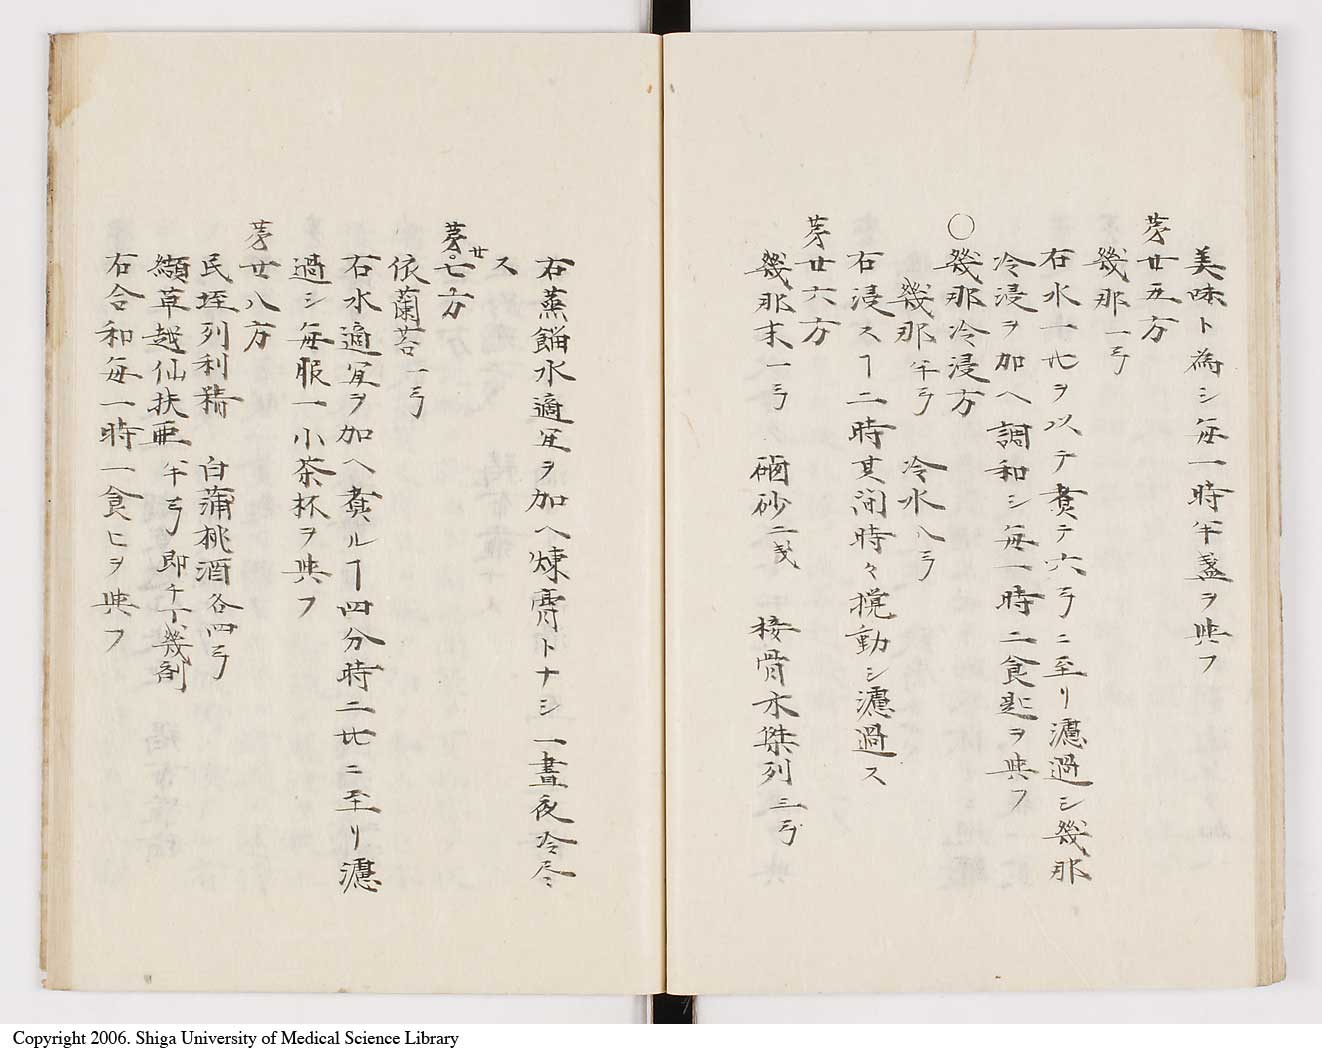 美味ト為シ毎一時半盞ヲ與フ
第廿五方
幾那一弓
右水十比ヲ以テ煮テ六弓ニ至リ濾過シ幾那
冷浸ヲ加ヘ調和シ毎一時二食匙ヲ與フ
〇幾那冷浸方
幾那半弓 冷水八弓
右浸スヿ二時其間時々撹動シ濾過ス
第廿六方
幾那末一弓 硇砂二戔 接骨木傑列三弓
右蒸餾水適宜ヲ加ヘ煉膏トナシ一晝夜令尽
ス
第廿七方
依蘭苔一弓
右水適宜ヲ加ヘ煮ルヿ四分時二比ニ至リ濾
過シ毎服一小茶杯ヲ與フ
第廿八方
民垤列利精 白蒲桃酒各四弓
纈草越仙扶亜半弓即チ丁幾剤
右合和毎一時一食ヒヲ與フ
Copyright 2006. Shiga University of Medical Science Library